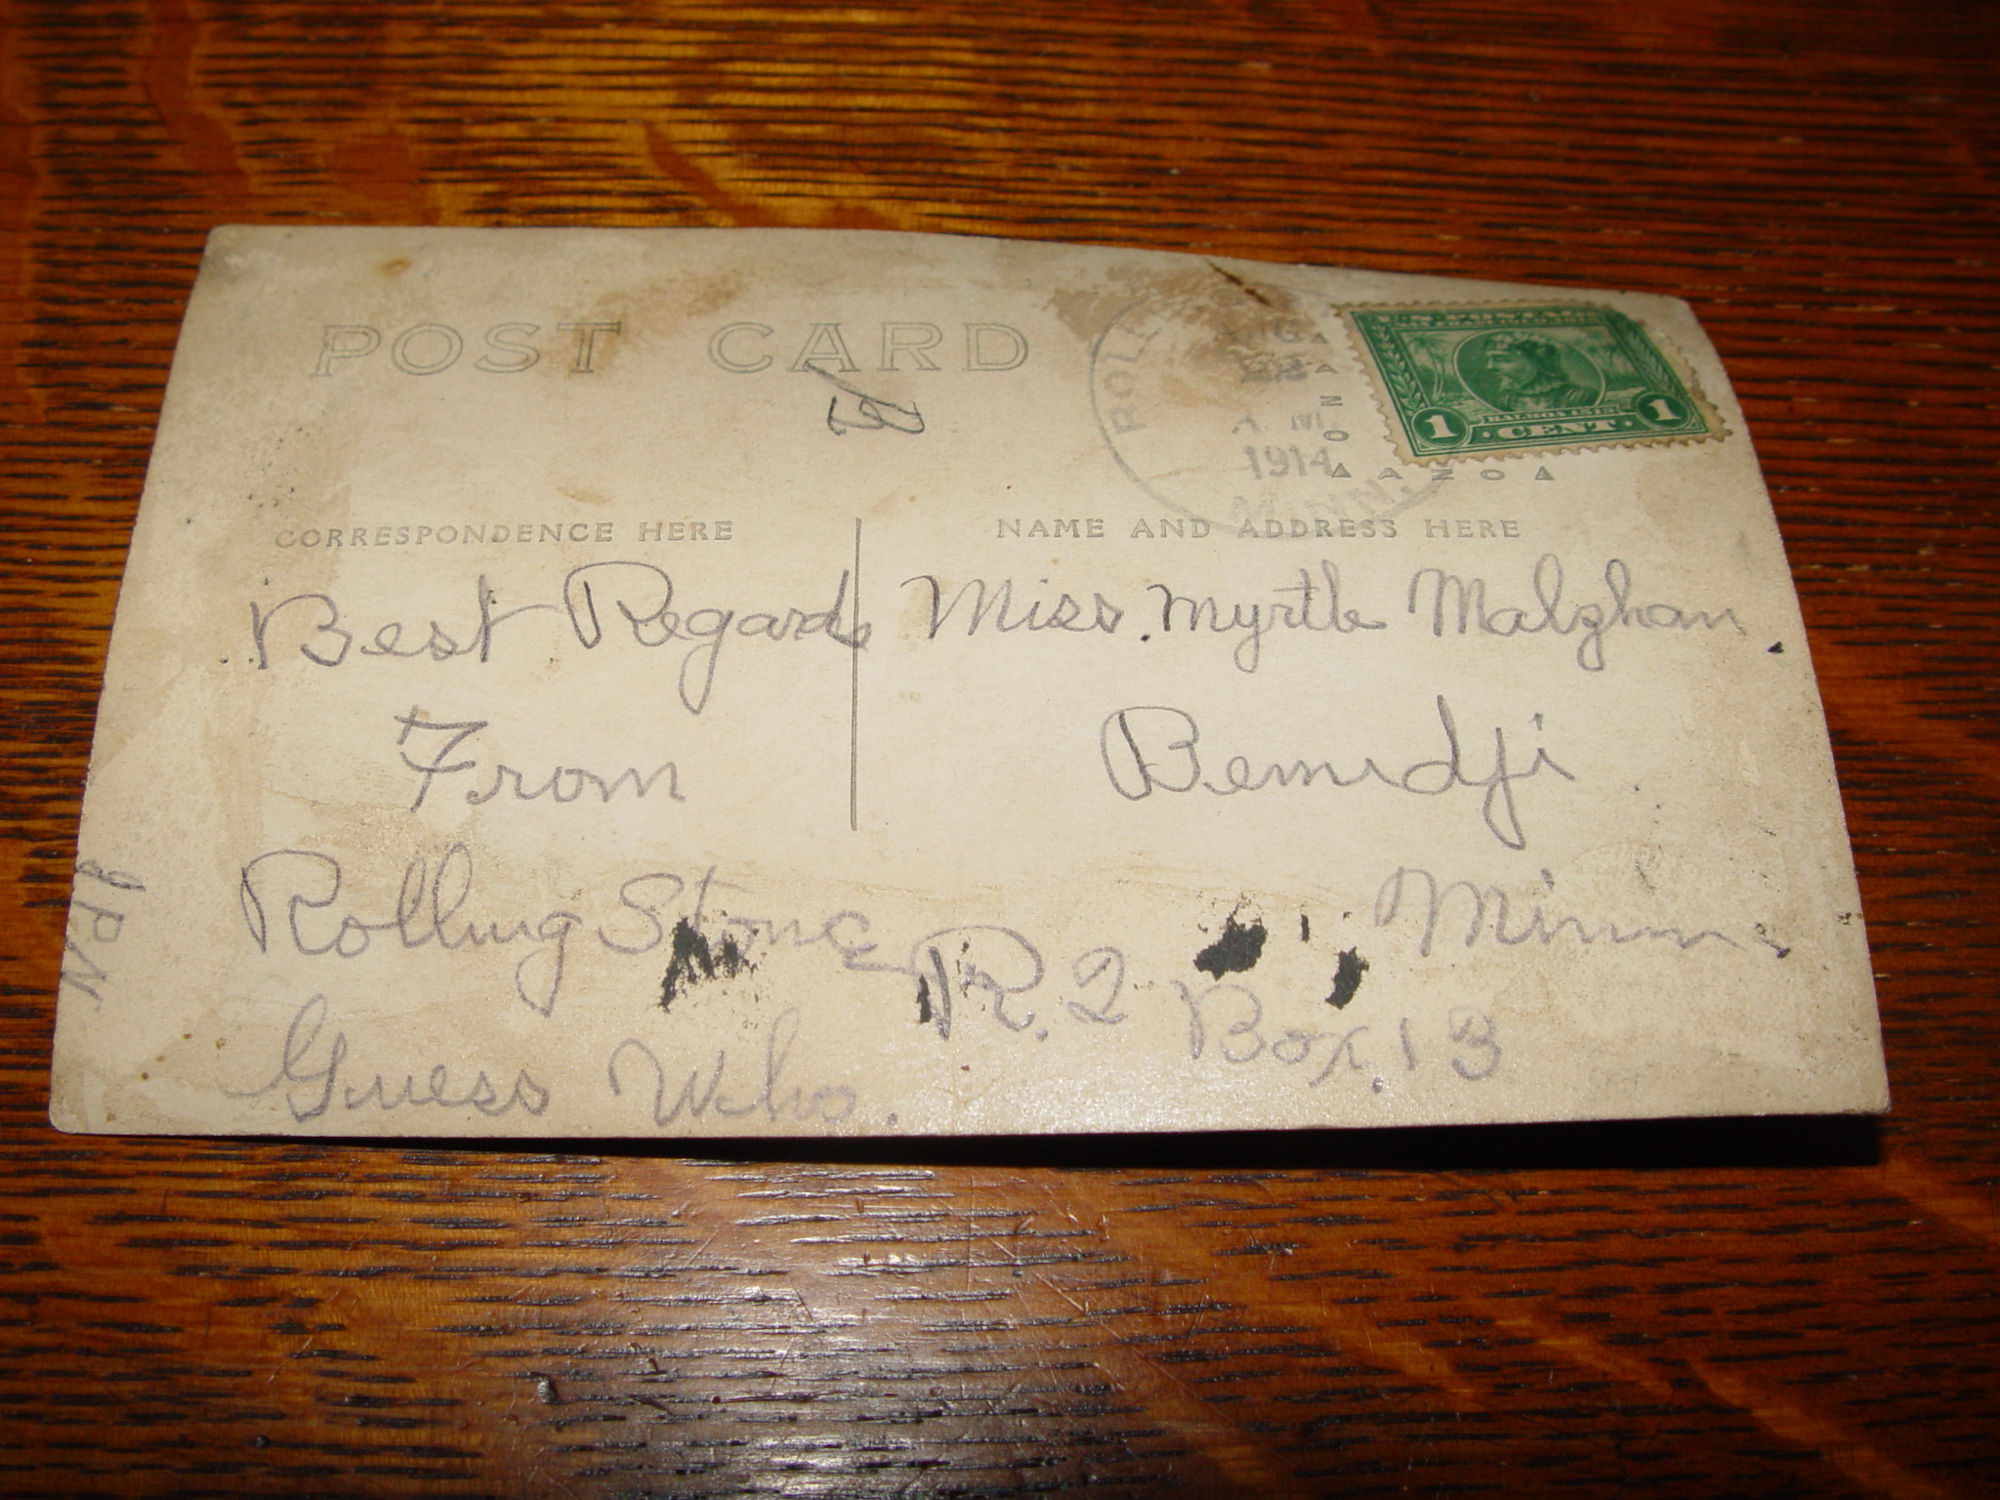 POST CARD
ROLL
AUG
22
A M
1914
MINN.
U.S. POSTAGE
BALBOA 1513
1 CENT 1
AZO
AZO
CORRESPONDENCE HERE
NAME AND ADDRESS HERE
Best Regards
From
Rolling Stone
Guess Who.
Miss. Myrtle Malzhan
Bemidji
Minn.
R. 2 Box. 13